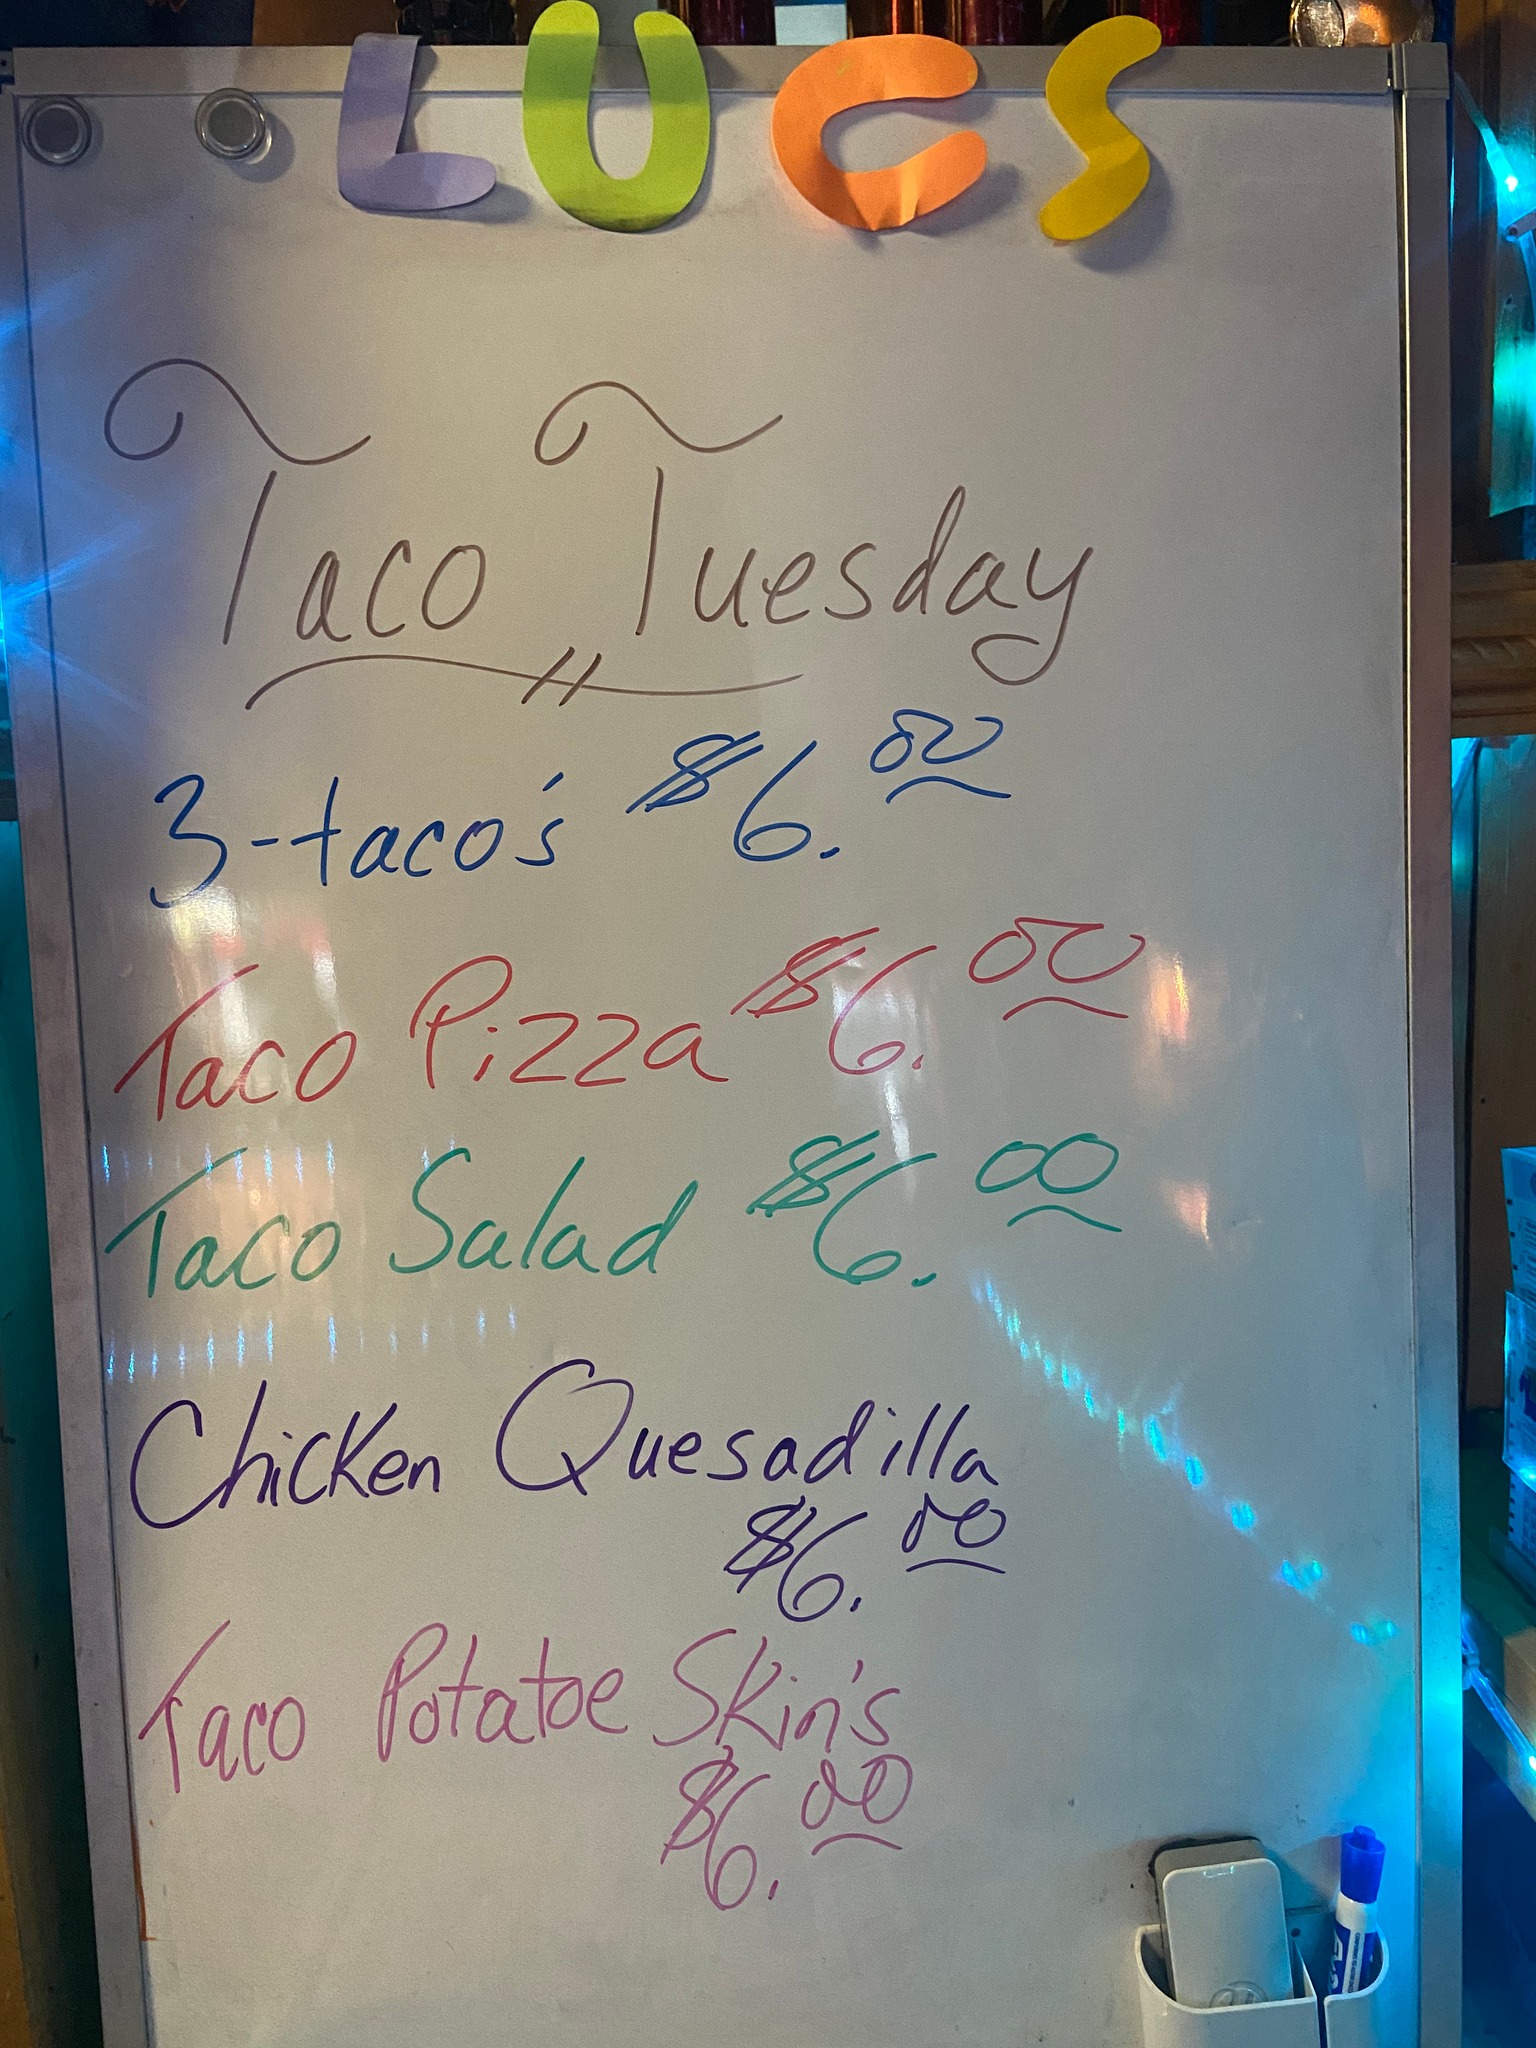 LUCS
Taco Tuesday
3-taco's $6.00
Taco Pizza $6.00
Taco Salad $6.00
Chicken Quesadilla
$6.00
Taco Potatoe Skin's
$6.00